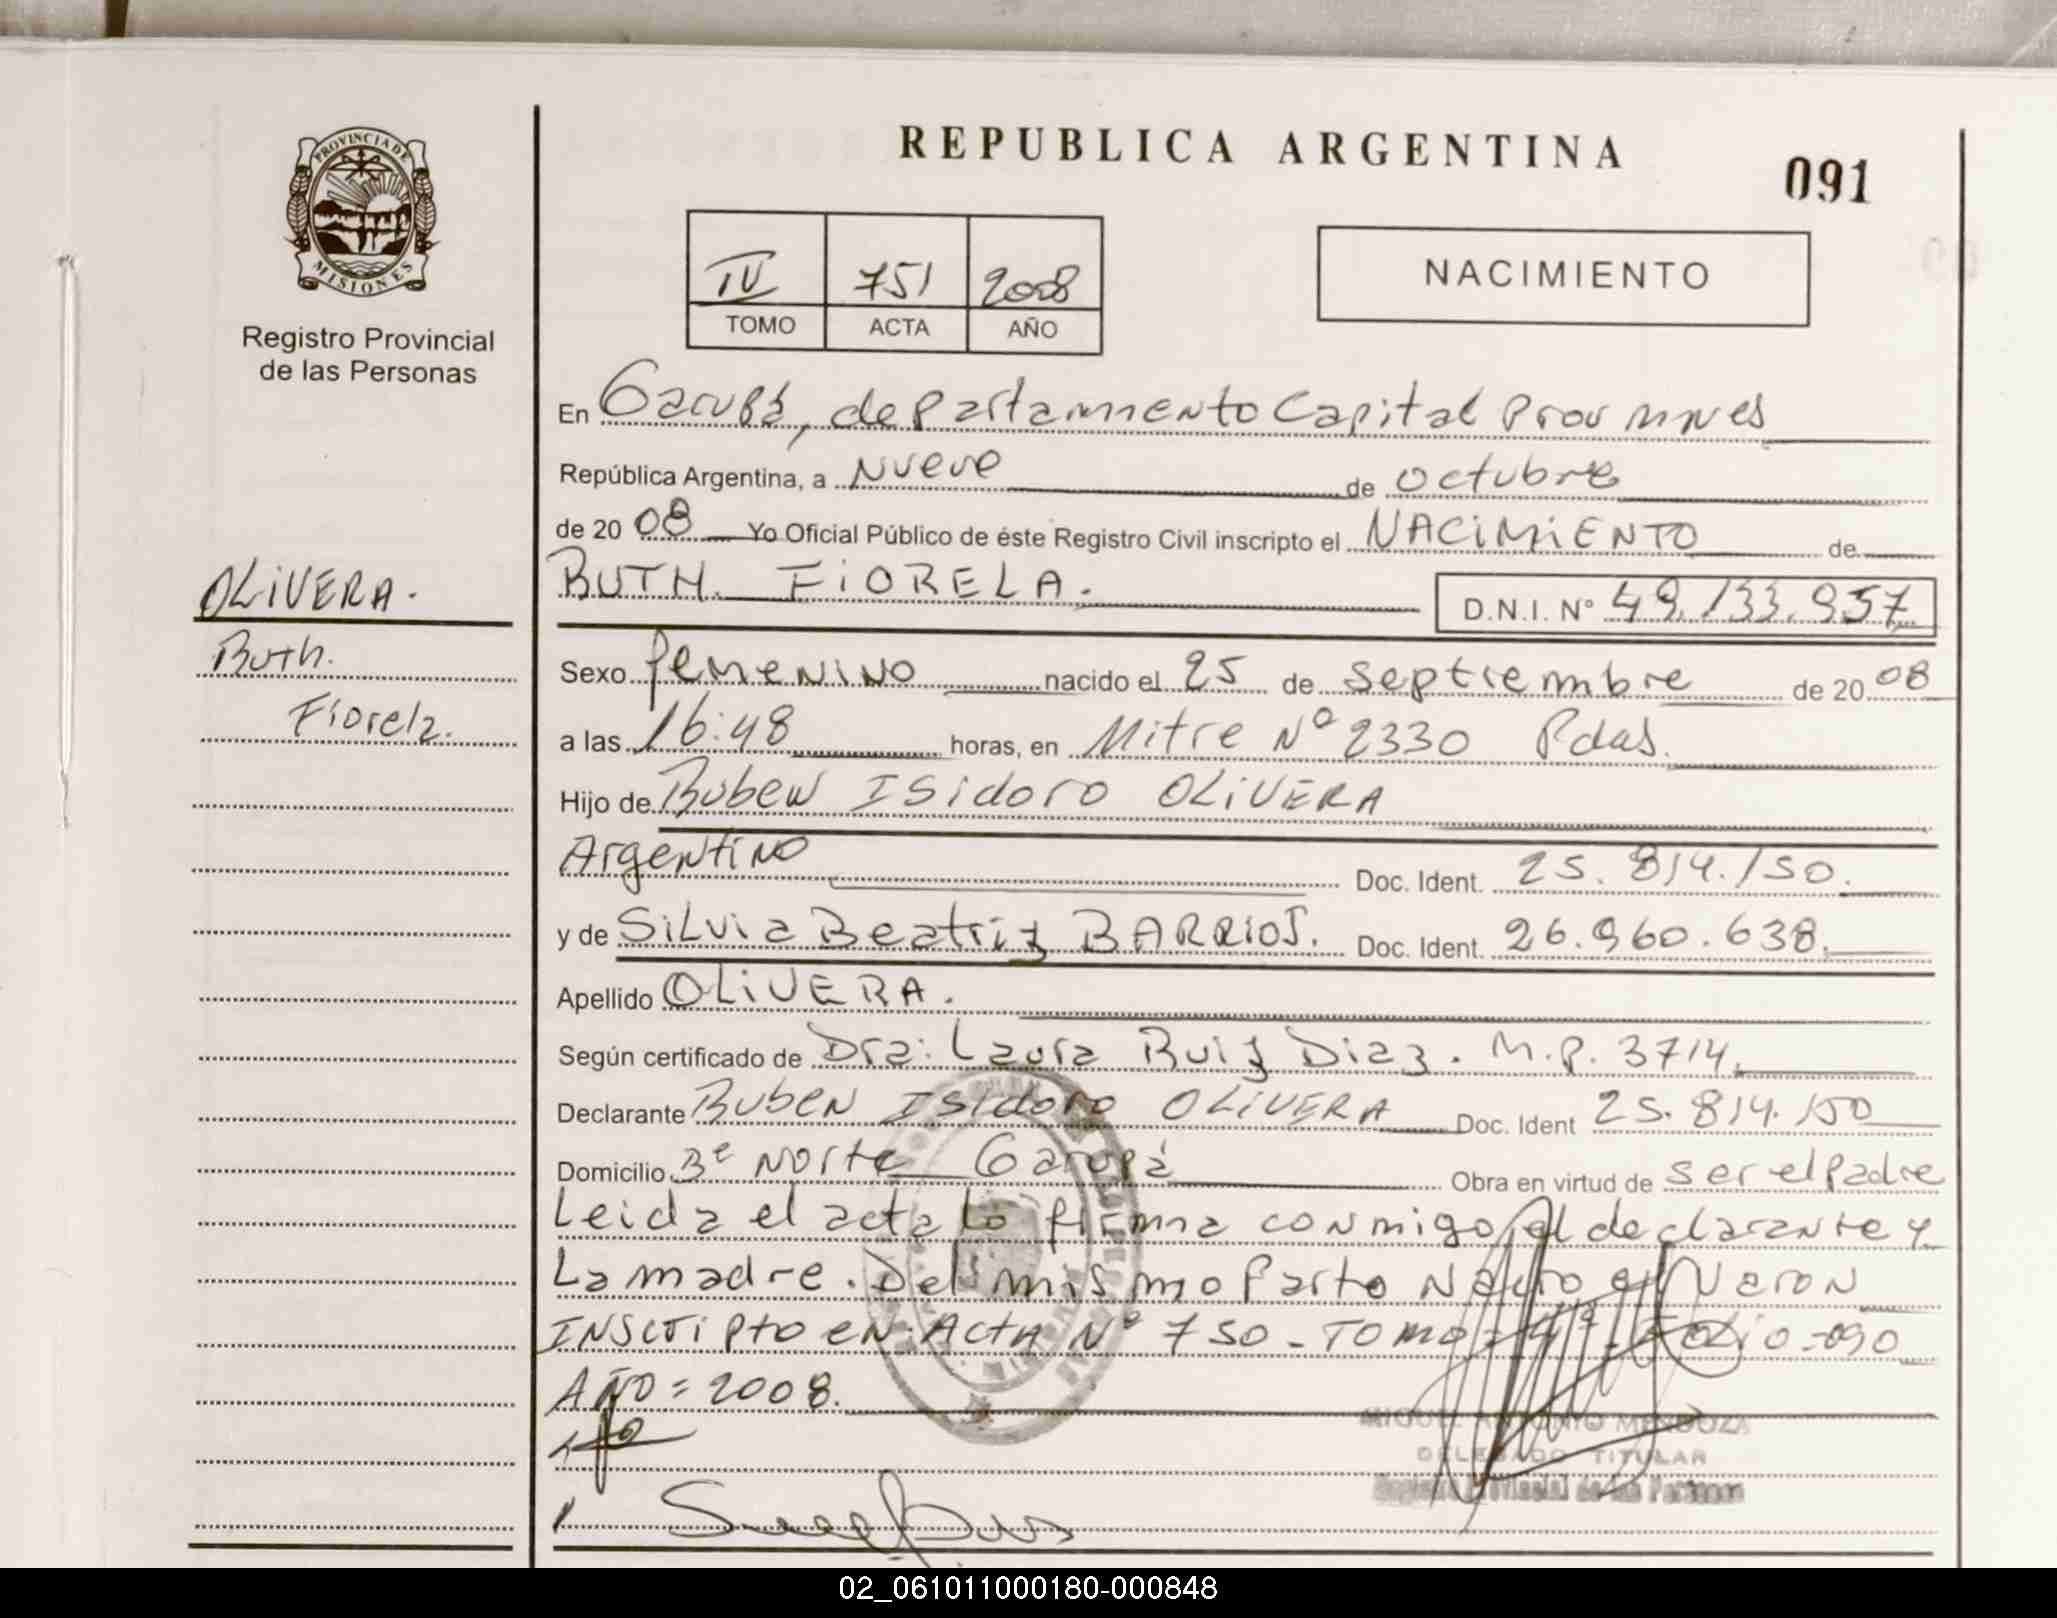 REPUBLICA ARGENTINA
091
PROVINCIA DE
MISIONES
Registro Provincial
de las Personas
IV 751 2008
TOMO ACTA AÑO
NACIMIENTO
En Garupá, departamento Capital Prov mnes
República Argentina, a Nueve de octubre
de 20 08 Yo Oficial Público de éste Registro Civil inscripto el NACIMIENTO de
OLIVERA.
Ruth.
Fiorela.
RUTH FIORELA. D.N.I. Nº 49.133.957
Sexo femenino nacido el 25 de septiembre de 20 08
a las 16:48 horas, en Mitre Nº 2330 Pdas.
Hijo de Ruben Isidoro OLIVERA
Argentino Doc. Ident. 25.814.150.
y de Silvia Beatriz BARRIOS. Doc. Ident. 26.960.638.
Apellido OLIVERA.
Según certificado de Dra: Laura Ruiz Diaz. M.P. 3714.
Declarante Ruben Isidoro OLIVERA Doc. Ident 25.814.150
Domicilio Bº Norte Garupá Obra en virtud de ser el Padre
Leida el acta lo firma conmigo el declarante y
La madre. Del mismo Parto Nacio el Varon
INSCripto en Acta Nº 750 - TOMO = 4º - Folio - 090
AÑO = 2008.
MIGUEL ANTONIO MENDOZA
DELEGADO TITULAR
Registro Provincial de las Personas
02_061011000180-000848